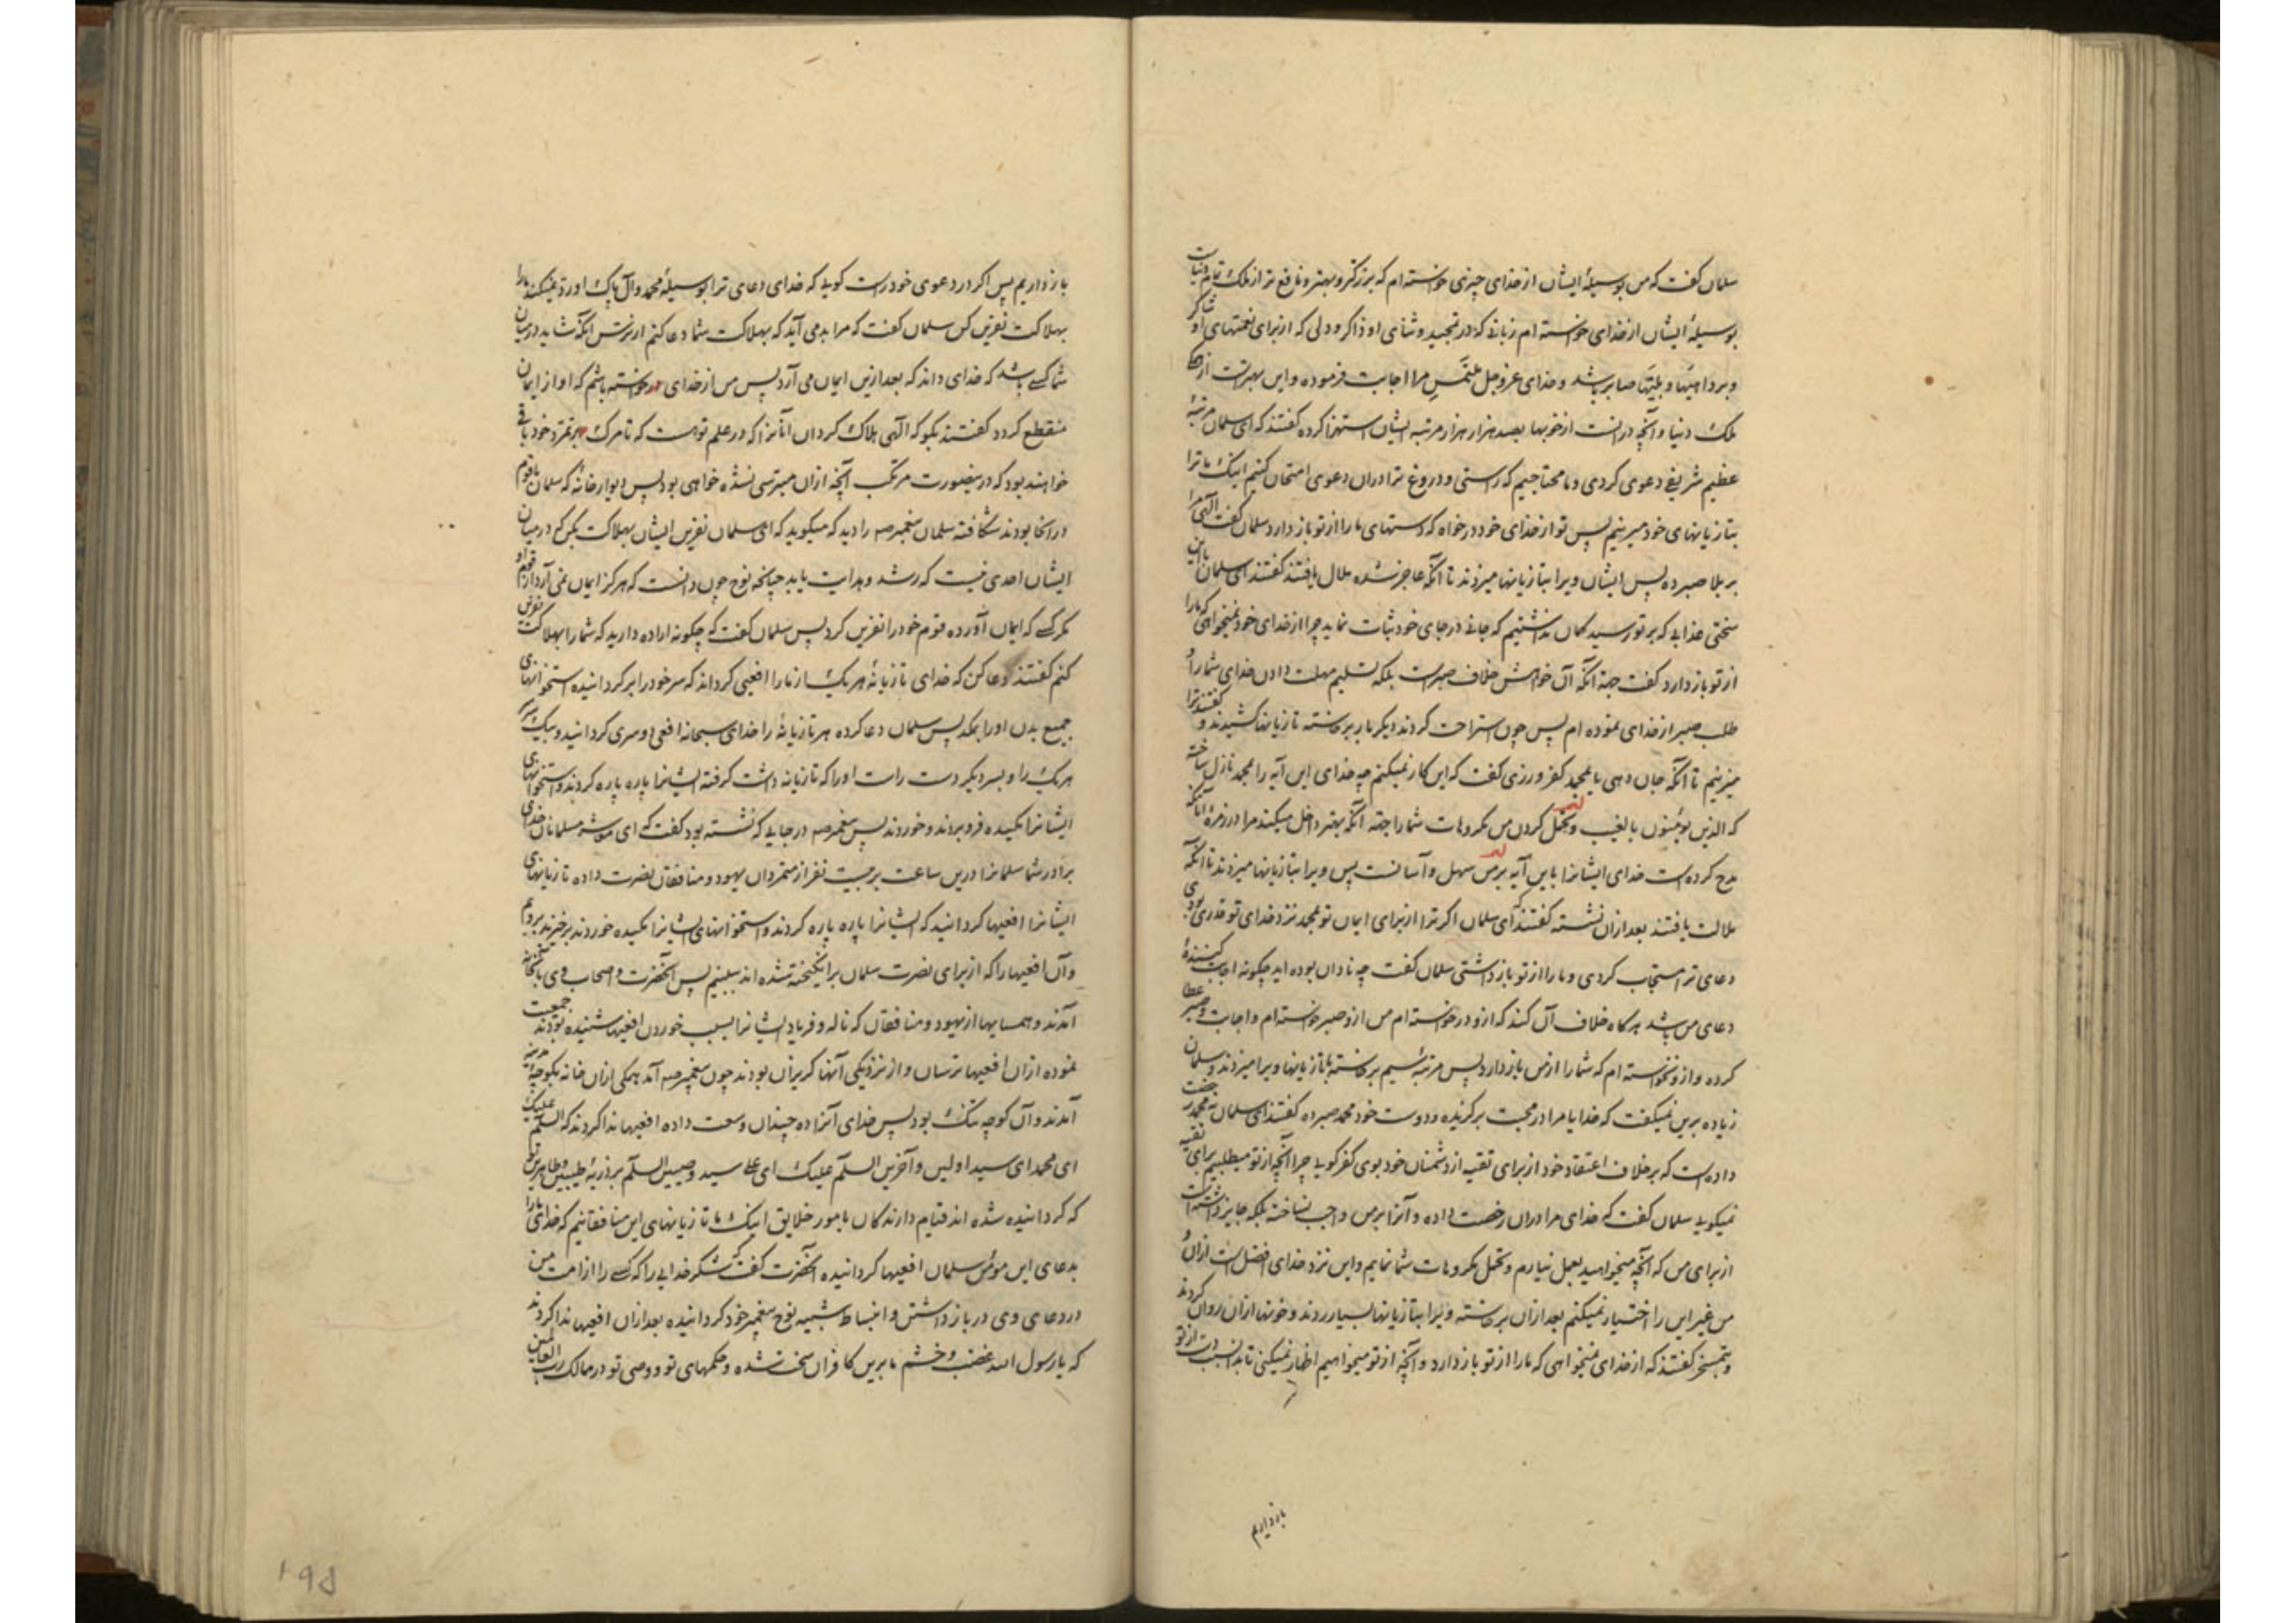 سلمان کفت که من بوسیلهٔ ایشان از خدای چیزی خواسته‌ام که بزرکتر و بهتر و نافع تر از ملک تمام دنیاست
بوسیلهٔ ایشان از خدای خواسته ام زبانی که در تمجید و ثنای او ذاکر و دلی که از برای نعمتهای او شاکر
و بر داهیتها و بلیتها صابر باشد و خدای عزوجل ملتمس مرا اجابت فرموده و این بهتر است از
ملک دنیا و آنچه در انست از خوبیها بصد هزار هزار مرتبه ایشان استهزا کرده کفتند که ای سلمان مرتبهٔ
عظیم شریفی دعوی کردی و ما محتاجیم که راستی و دروغ ترا در ان دعوی امتحان کنیم اینک ما ترا
بتازیانهای خود میزنیم پس تو از خدای خود درخواه که دستهای ما را از تو باز دارد سلمان کفت الهی مرا
بر بلا صبر ده پس ایشان ویرا بتازیانها میزدند تا آنکه عاجز شده ملال یافتند کفتند ای سلمان باین
سختی عذابی که بر تو رسید کمان نداشتیم که جانی در جای خود ثبات نماید چرا از خدای خود نمیخواهی که ما را
از تو باز دارد کفت جهة آنکه آن خواهش خلاف صبر است بلکه تسلیم مهلت دادن خدای شما را و
طلب صبر از خدای نموده ام پس چون استراحت کردند دیکر بار برخاسته تازیانها کشیدند و کفتند ترا
میزنیم تا آنکه جان دهی یا بمحمد کفر ورزی کفت که این کار نمیکنم چه خدای این آیه را بمحمد نازل ساخته
که الذین یؤمنون بالغیب و تحمل کردن من مکروهات شما را جهة آنکه بهتر داخل میکند مرا در زمرهٔ آنانکه
مدح کرده است خدای ایشانرا باین آیه بر من سهل و آسانست پس ویرا بتازیانها میزدند تا آنکه
ملالت یافتند بعد از ان نشسته کفتند که ای سلمان اکر ترا از برای ایمان تو بمحمد نزد خدای تو قدری بودی
دعای ترا مستجاب کردی و ما را از تو باز داشتی سلمان کفت چه نادان بوده اید چکونه اجابت کنندهٔ
دعای من باشد هرکاه خلاف آن کند که از و درخواسته ام من از و صبر خواسته ام و اجابت و صبر عطا
کرده و از و نخواسته ام که شما را از من باز دارد پس مرتبهٔ سیم برخاسته با تازیانها ویرا میزدند و سلمان
زیاده برین نمیکفت که خدایا مرا در محبت برکزیده و دوست خود محمد صبر ده کفتند ای سلمان نه محمد رخصت
داده است که بر خلاف اعتقاد خود از برای تقیه از دشمنان خود بوی کفر کوید چرا آنچه از تو میطلبیم برای تقیه
نمیکویی سلمان کفت که خدای مرا در ان رخصت داده و آنرا بر من واجب نساخته بلکه جایز داشته است
از برای من که آنچه میخواهید بعمل نیارم و تحمل مکروهات شما نمایم و این نزد خدای افضل است از ان و
من غیر این را اختیار نمیکنم بعد از ان برخاسته ویرا بتازیانها بسیار زدند و خونها از ان روان کردند
و بتمسخر کفتند که از خدای نمیخواهی که ما را از تو باز دارد و آنچه از تو میخواهیم اظهار نمیکنی تا بدان سبب دست از تو
باز داریم
باز داریم پس اکر در دعوی خود راست کویی که خدای دعای ترا بوسیلهٔ محمد و آل پاک او رد نمیکند ما را
بهلاکت نفرین کن سلمان کفت که مرا بد می آید که بهلاکت شما دعا کنم از ترس آنکه شاید در میان
شما کسی باشد که خدای داند که بعد ازین ایمان می آرد پس من از خدای درخواسته باشم که او از ایمان
منقطع کردد کفتند بکو که الهی هلاک کردان آنانرا که در علم تو هست که تا مرک بر تمرد خود باقی
خواهند بود که درینصورت مرتکب آنچه از ان میترسی نشده خواهی بود پس دیوار خانهٔ که سلمان با قوم
در انجا بودند شکافته سلمان پیغمبر صه را دید که میکوید که ای سلمان نفرین ایشان بهلاکت بکن که در میان
ایشان احدی نیست که رشد و هدایت یابد چنانچه نوح چون دانست که هرکز ایمان نمی آرد از قوم او
مکر کسی که ایمان آورده قوم خود را نفرین کرد پس سلمان کفت که چکونه اراده دارید که شما را بهلاکت نفرین
کنم کفتند دعا کن که خدای تازیانهٔ هر یک از ما را افعیی کرداند که سر خود را بر کردانیده استخوانهای
جمیع بدن او را بمکد پس سلمان دعا کرده هر تازیانهٔ را خدای سبحانه افعی دو سری کردانید و بیک سر
هر یک را و بسر دیکر دست راست او را که تازیانه داشت کرفته ایشانرا پاره پاره کردند و استخوانهای
ایشانرا مکیده فرو بردند و خوردند پس پیغمبر صه در جایی که نشسته بود کفت که ای معشر مسلمانان خدای
برادر شما سلمانرا درین ساعت بر بیست نفر از متمردان یهود و منافقان نصرت داده تازیانهای
ایشانرا افعیها کردانید که ایشانرا پاره پاره کردند و استخوانهای ایشانرا مکیده خوردند برخیزید برویم
و آن افعیها را که از برای نصرت سلمان برانکیخته شده اند ببینیم پس آنحضرت و اصحاب وی بآنخانه
آمدند و همسایها از یهود و منافقان که ناله و فریاد ایشانرا بسبب خوردن افعیها شنیده بودند جمعیت
نموده از ان افعیها ترسان و از نزدیکی آنها کریزان بودند چون پیغمبر صه آمد همکی از ان خانه بکوچهٔ مدینه
آمدند و آن کوچه تنک بود پس خدای آنرا ده چندان وسعت داده افعیها ندا کردند که السلم علیک
ای محمد ای سید اولین و آخرین السلم علیک ای علی سید وصیین السلم بر ذریهٔ طیبین و طاهرین تو
که کردانیده شده اند قیام دارندکان بامور خلایق اینک ما تازیانهای این منافقانیم که خدای ما را
بدعای این مؤمن سلمان افعیها کردانیده آنحضرت کفت که شکر خدایی را که کسی را از امت من
در دعای وی در باز داشتن و انبساط شبیه نوح پیغمبر خود کردانیده بعد از ان افعیها ندا کردند
که یا رسول الله غضب و خشم ما برین کافران سخت شده و حکمهای تو و وصی تو در ممالک رب العالمین
۱۹۵